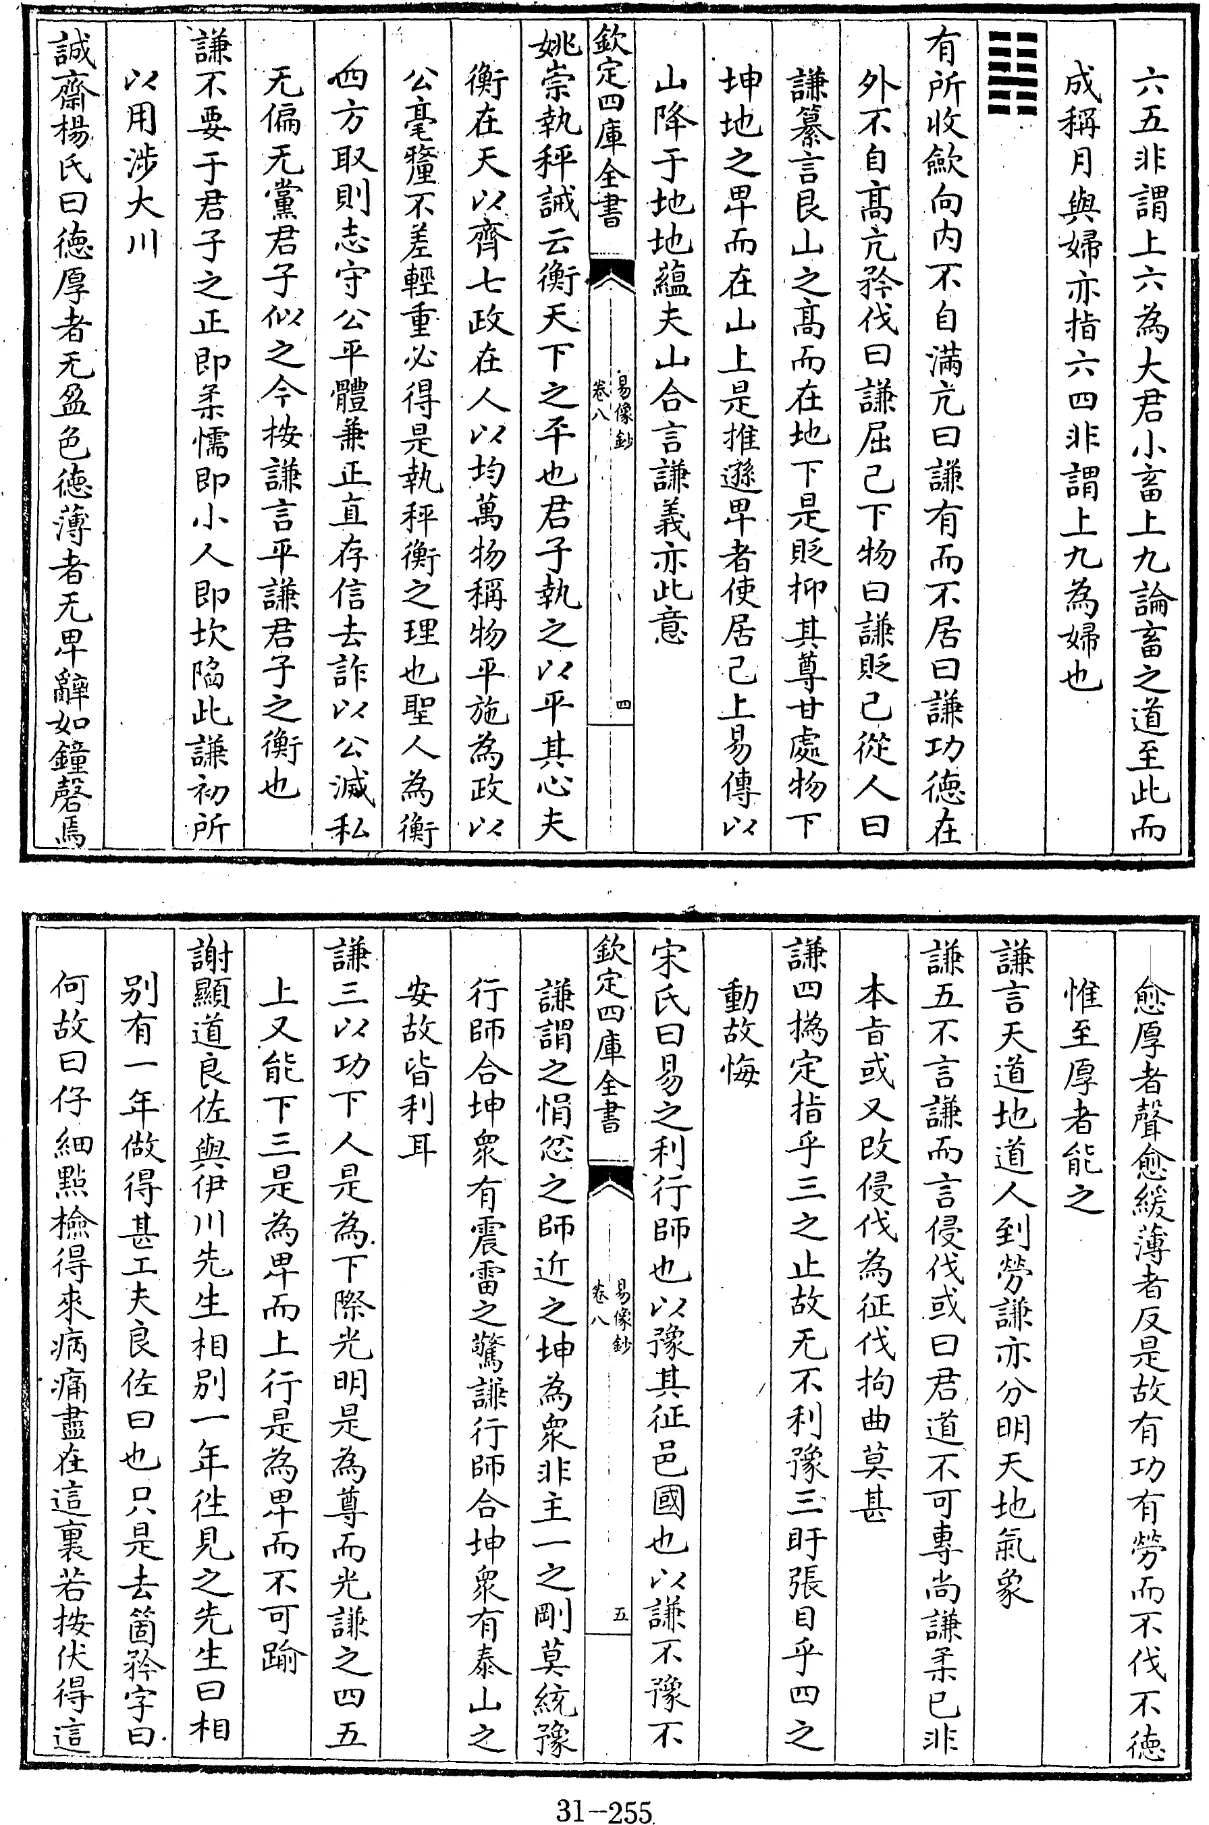 六五非謂上六為大君小畜上九論畜之道至此而
成稱月與婦亦指六四非謂上九為婦也
䷎
有所收歛向内不自滿亢曰謙有而不居曰謙功德在
外不自髙亢矜伐曰謙屈己下物曰謙貶己從人曰
謙纂言艮山之髙而在地下是貶抑其尊甘處物下
坤地之卑而在山上是推遜卑者使居己上易傳以
山降于地地蘊夫山合言謙義亦此意
欽定四庫全書
易像鈔
卷八
四
姚崇執秤誡云衡天下之平也君子執之以平其心夫
衡在天以齊七政在人以均萬物稱物平施為政以
公毫釐不差輕重必得是執秤衡之理也聖人為衡
四方取則志守公平體兼正直存信去詐以公滅私
无偏无黨君子似之今按謙言平謙君子之衡也
謙不要于君子之正即柔懦即小人即坎陷此謙初所
以用涉大川
誠齋楊氏曰德厚者无盈色德薄者无卑辭如鐘磬焉
愈厚者聲愈緩薄者反是故有功有勞而不伐不德
惟至厚者能之
謙言天道地道人到勞謙亦分明天地氣象
謙五不言謙而言侵伐或曰君道不可專尚謙柔已非
本旨或又改侵伐為征伐拘曲莫甚
謙四撝定指乎三之止故无不利豫三盱張目乎四之
動故悔
宋氏曰易之利行師也以豫其征邑國也以謙不豫不
欽定四庫全書
易像鈔
卷八
五
謙謂之悁忿之師近之坤為衆非主一之剛莫統豫
行師合坤衆有震雷之驚謙行師合坤衆有泰山之
安故皆利耳
謙三以功下人是為下際光明是為尊而光謙之四五
上又能下三是為卑而上行是為卑而不可踰
謝顯道良佐與伊川先生相别一年徃見之先生曰相
别有一年做得甚工夫良佐曰也只是去箇矜字曰
何故曰仔細㸃檢得來病痛盡在這裏若按伏得這
31-255